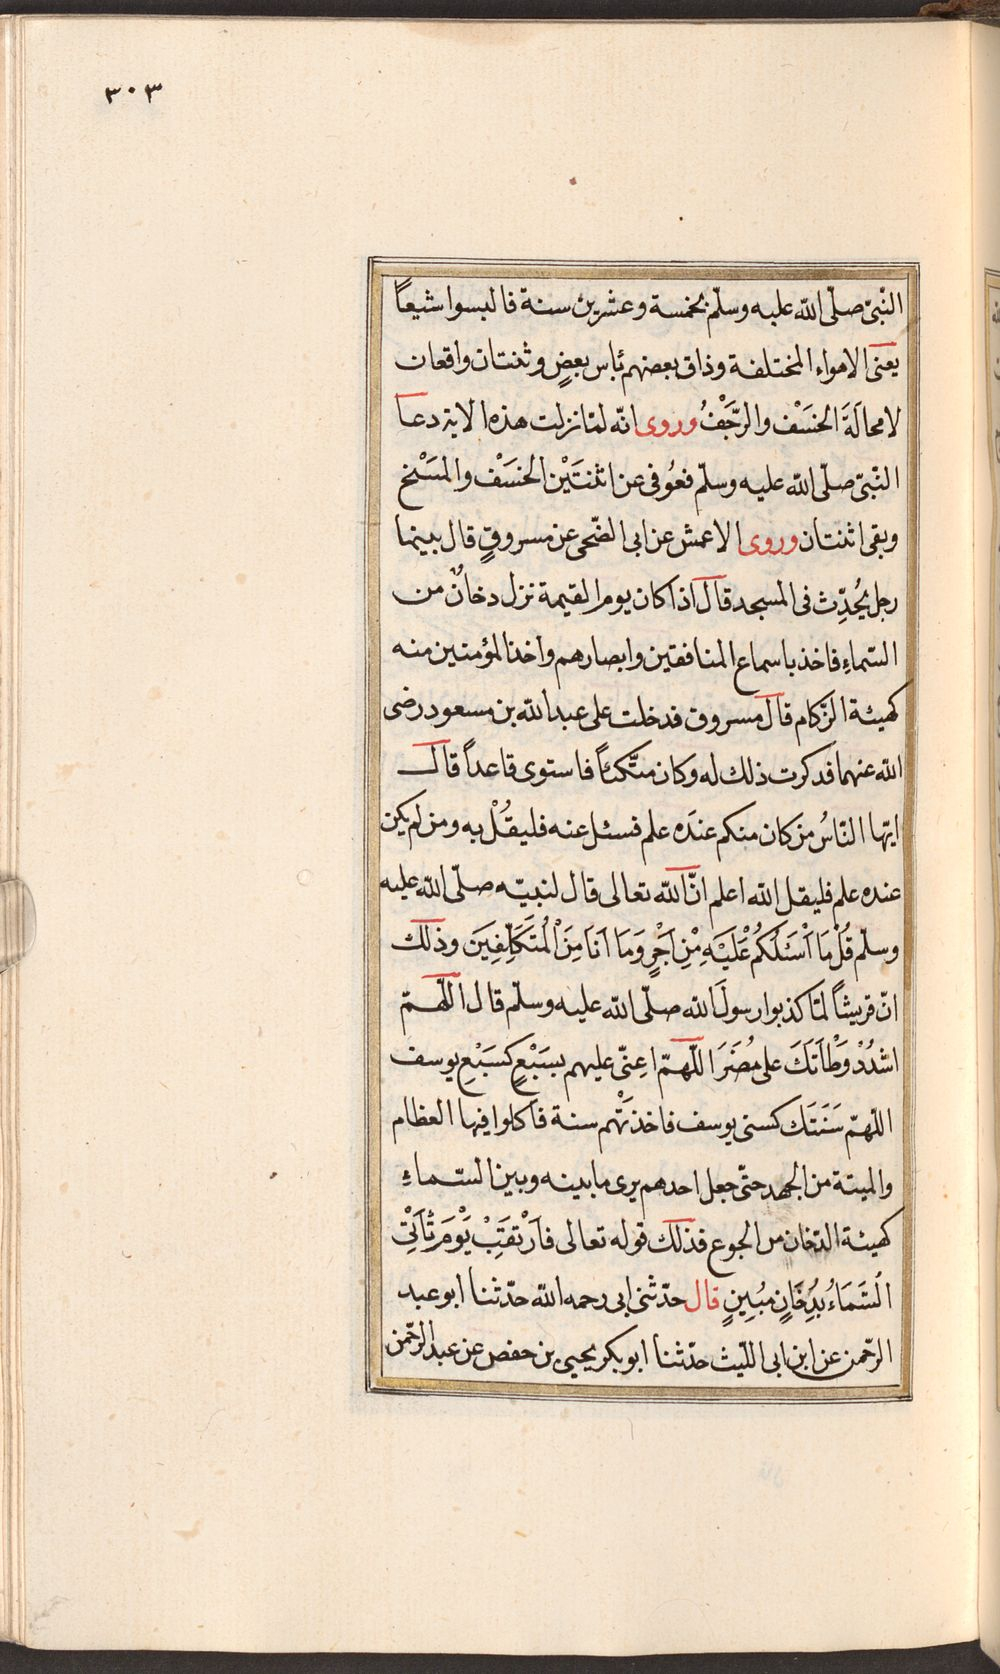 ٣٠٣
النّبىّ صلّى اللّه عليه وسلّم بخمسة وعشرين سنة فالبسوا شيعاً
يعنى الاهواء المختلفة وذاق بعضهم بأس بعضٍ وثنتان واقعان
لا محالَةَ الخسَفْ والرّجَفْ وروى انّه لمّا نزلت هذه الاية دعا
النّبىّ صلّى اللّه عليه وسلّم فعُوفى عن اثنتَيْن الخسَفْ والمسَنْخ
وبقى اثنتان وروى الاعمش عن ابى الضّحى عن مسروقٍ قال بينما
رجل يُحُدِّث فى المسجد قال اذا كان يوم القيمة نزل دخانٌ من
السّماءِ فاخذ باسماع المنافقين وابصارهم واخذ المؤمنين منه
كهيئة الزّكام قال مسروق فدخلت على عبد اللّه بن مسعود رضى
اللّه عنهما فدكرت ذلك له وكان متّكئاً فاستوى قاعداً قال
ايّها النّاسُ من كان منكم عندَه علم فسئل عنه فليقُلْ به ومن لم يكن
عنده علم فليقل اللّه اعلم انّ اللّه تعالى قال لنبيّه صلّى اللّه عليه
وسلّم قُلْ مَا اَسْئَلُكُمْ عَلَيَهِ مْنِ اَجْرٍ وَمَا اَنَا مِنَ الْمُتَكَلِّفِيَن وذلك
انّ قريشاً لمّا كذبوا رسولَ اللّه صلّى اللّه عليه وسلّم قال اللّهمّ
اشدُدْ وَطْاَتَكَ على مُضَرَ اللّهمّ اعِنّى عليهم بسَبْعٍ كسَبْعِ يوسف
اللّهمّ سَنَتَك كسنى يوسف فاخذَتْهم سنة فاكلوا فيها العظام
والميتة من الجهد حتّى جعل احدهم يرى ما بينه وبين السّماءِ
كهيئة الدّخان من الجوع فذلك قوله تعالى فاَرْتَقِبْ يَوْمَ تَاْتِى
اُلسَّمَاءُ بِدُخَانٍ مُبِينٍ قال حدّثنى ابى رحمه اللّه حدّثنا ابو عبد
الرّحمن عن ابن ابى اللّيث حدّثنا ابو بكر يحيى بن حفص عن عبد الرّحمن